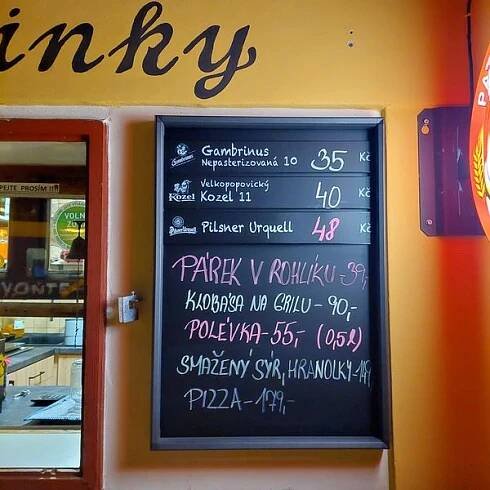 inky
Gambrinus
Nepasterizovaná 10 35 Kč
Velkopopovický
Kozel 11 40 Kč
Kozel
Pilsner Urquell 48 Kč
PÁREK V ROHLÍKU - 39,-
KLOBÁSA NA GRILU - 90,-
POLÉVKA - 55,- (0,5l)
SMAŽENÝ SÝR, HRANOLKY - 149
PIZZA - 179,-
PEJTE PROSÍM !!!
VOLN